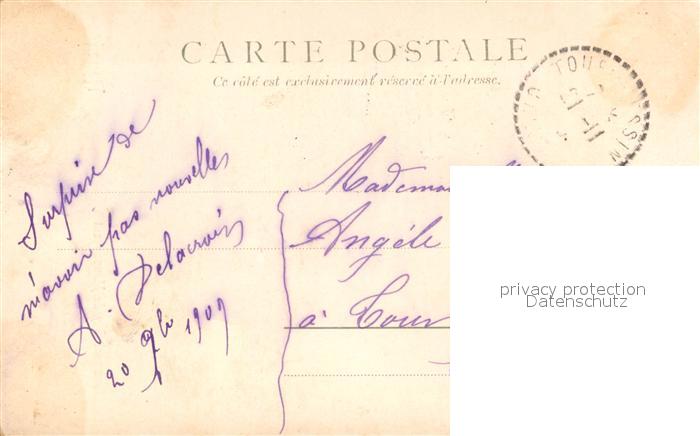 CARTE POSTALE
Ce côté est exclusivement réservé à l'adresse.
Surprise de
n'avoir pas nouvelles
A. Delacroix
20 9b 1909
Mademoi
Angèle
à Cour
privacy protection
Datenschutz